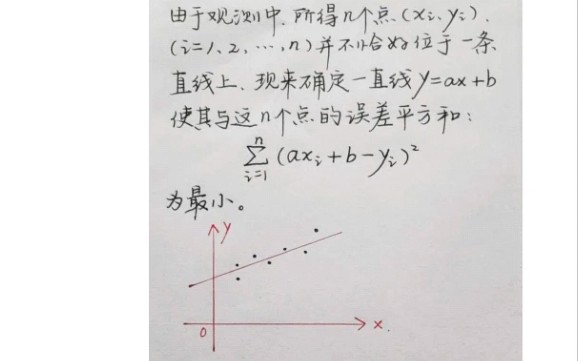 由于观测中、所得n个点(xi、yi)、
(i=1、2、…,n)并不恰好位于一条
直线上、现来确定一直线y=ax+b
使其与这n个点的误差平方和:
n
∑(axi+b-yi)²
i=1
为最小。
y
0
x.